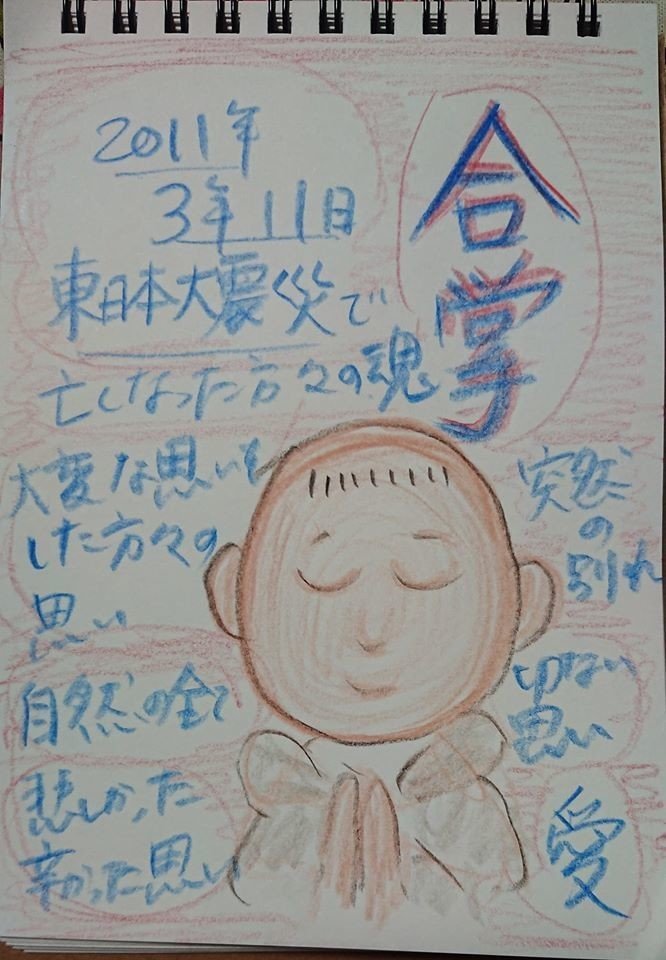 合掌
2011年
3年11日
東日本大震災で
亡くなった方々の魂
大変な思いを
した方々の
思い
自然の全て
悲しかった
辛かった思い
突然
の
別れ
切ない
思い
愛